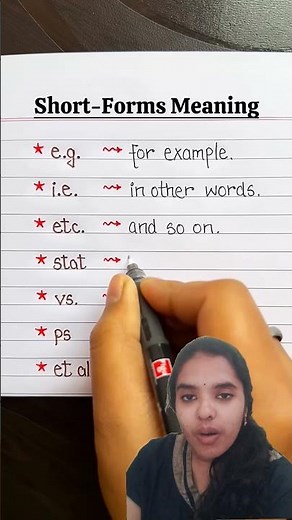 Short-Forms Meaning
* e.g. ⇝ for example.
* i.e. ⇝ in other words.
* etc. ⇝ and so on.
* stat ⇝
* vs.
* ps
* et al